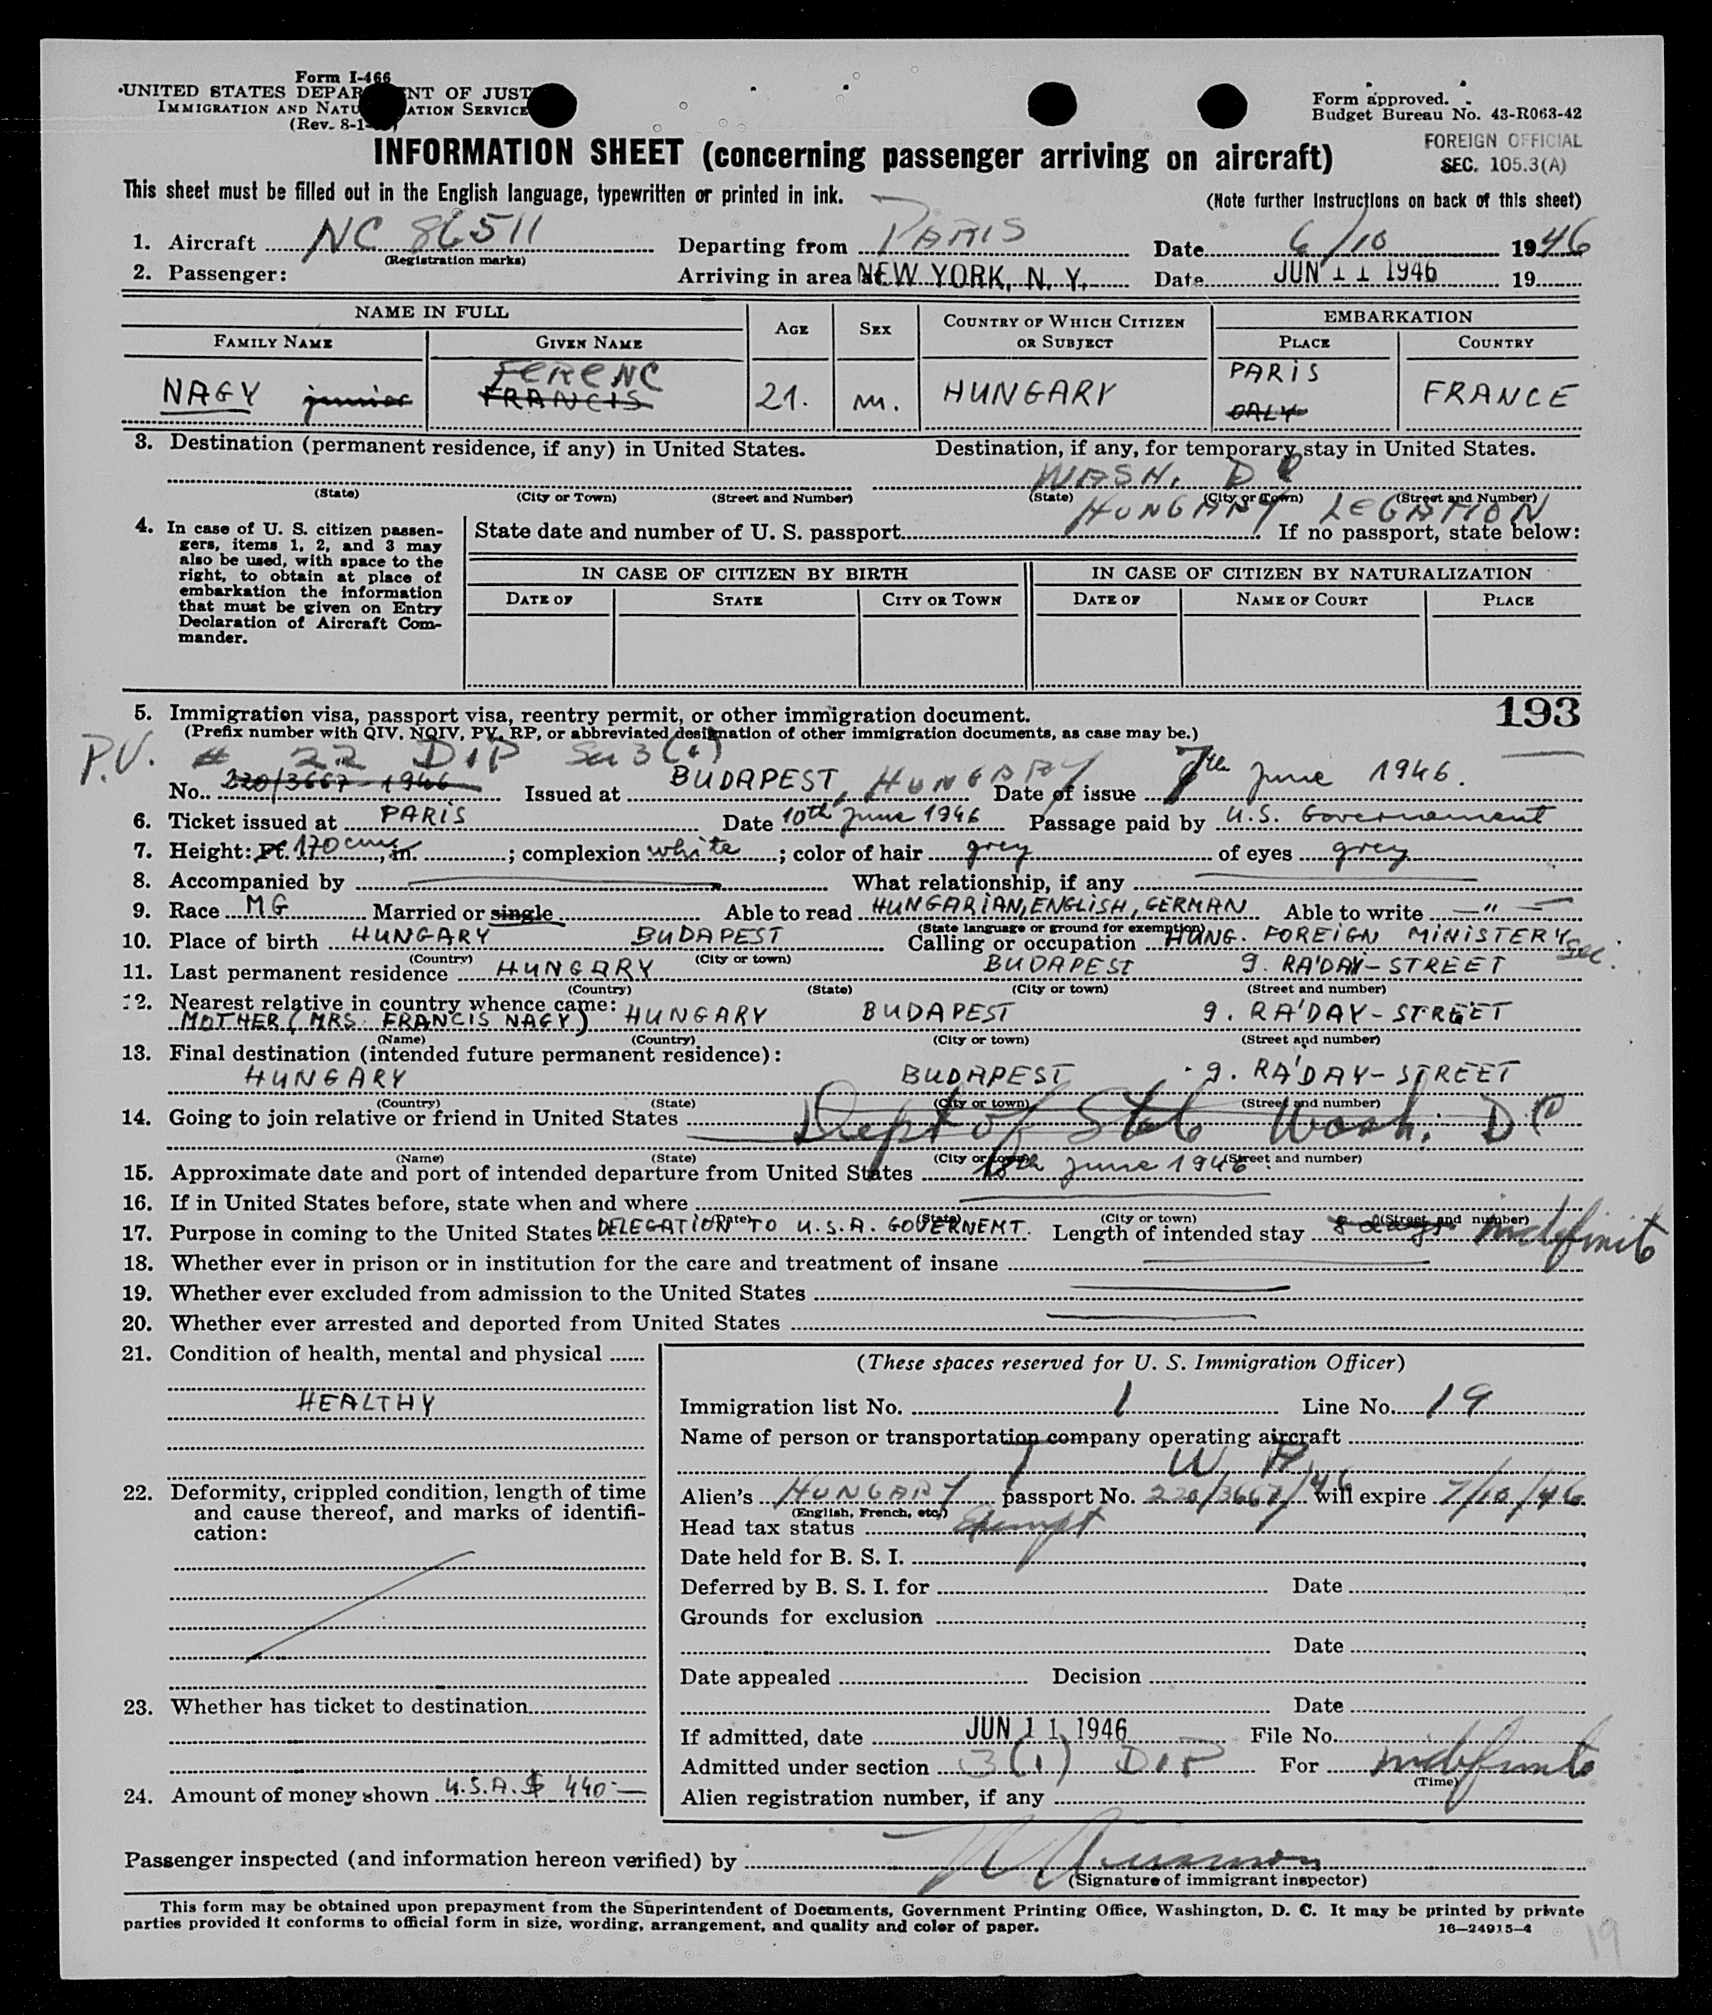 Form I-466
UNITED STATES DEPAR NT OF JUST
IMMIGRATION AND NATU ATION SERVICE
(Rev. 8-1-
Form approved.
Budget Bureau No. 43-R063-42
FOREIGN OFFICIAL
SEC. 105.3(A)
INFORMATION SHEET (concerning passenger arriving on aircraft)
This sheet must be filled out in the English language, typewritten or printed in ink.
(Note further instructions on back of this sheet)
1. Aircraft NC 86511 Departing from PARIS Date 6/10 1946
(Registration marks)
2. Passenger: Arriving in area at NEW YORK, N. Y. Date JUN 11 1946 19
NAME IN FULL AGE SEX COUNTRY OF WHICH CITIZEN OR SUBJECT EMBARKATION
FAMILY NAME GIVEN NAME PLACE COUNTRY
FERENC PARIS
NAGY junior FRANCIS 21. m. HUNGARY ORLY FRANCE
3. Destination (permanent residence, if any) in United States. Destination, if any, for temporary stay in United States.
WASH. D C
(State) (City or Town) (Street and Number) (State) (City or Town) (Street and Number)
HUNGARY LEGATION
4. In case of U. S. citizen passengers, items 1, 2, and 3 may also be used, with space to the right, to obtain at place of embarkation the information that must be given on Entry Declaration of Aircraft Commander.
State date and number of U. S. passport If no passport, state below:
IN CASE OF CITIZEN BY BIRTH IN CASE OF CITIZEN BY NATURALIZATION
DATE OF STATE CITY OR TOWN DATE OF NAME OF COURT PLACE
193
5. Immigration visa, passport visa, reentry permit, or other immigration document.
(Prefix number with QIV, NQIV, PV, RP, or abbreviated designation of other immigration documents, as case may be.)
P.V. # 22 DIP Sec 3(1)
No. 220/3667-1946 Issued at BUDAPEST, HUNGARY Date of issue 7th june 1946.
6. Ticket issued at PARIS Date 10th june 1946 Passage paid by U.S. Governement
7. Height: Ft. 170 cm, in. ; complexion white ; color of hair grey of eyes grey
8. Accompanied by What relationship, if any
9. Race MG Married or single Able to read HUNGARIAN, ENGLISH, GERMAN Able to write —"—
(State language or ground for exemption)
10. Place of birth HUNGARY BUDAPEST Calling or occupation HUNG. FOREIGN MINISTERY Sec.
(Country) (City or town)
11. Last permanent residence HUNGARY BUDAPEST 9. RA'DAY-STREET
(Country) (State) (City or town) (Street and number)
12. Nearest relative in country whence came:
MOTHER (MRS. FRANCIS NAGY) HUNGARY BUDAPEST 9. RA'DAY-STREET
(Name) (Country) (City or town) (Street and number)
13. Final destination (intended future permanent residence):
HUNGARY BUDAPEST 9. RA'DAY-STREET
(Country) (State) (City or town) (Street and number)
14. Going to join relative or friend in United States Dept of State Wash. D C
(Name) (State) (City or town) (Street and number)
15. Approximate date and port of intended departure from United States 18th june 1946
16. If in United States before, state when and where
(Date) (State) (City or town) (Street and number)
17. Purpose in coming to the United States DELEGATION TO U.S.A. GOVERNEMT. Length of intended stay 8 days indefinite
18. Whether ever in prison or in institution for the care and treatment of insane
19. Whether ever excluded from admission to the United States
20. Whether ever arrested and deported from United States
21. Condition of health, mental and physical
HEALTHY
22. Deformity, crippled condition, length of time and cause thereof, and marks of identification:
23. Whether has ticket to destination
24. Amount of money shown U.S.A.$ 440.—
(These spaces reserved for U. S. Immigration Officer)
Immigration list No. 1 Line No. 19
Name of person or transportation company operating aircraft
T W A
Alien's HUNGARY passport No. 220/3667/46 will expire 7/10/46
(English, French, etc.)
Head tax status Exempt
Date held for B. S. I.
Deferred by B. S. I. for Date
Grounds for exclusion
Date
Date appealed Decision
Date
If admitted, date JUN 11 1946 File No.
Admitted under section 3(1) DIP For indefinite
(Time)
Alien registration number, if any
Passenger inspected (and information hereon verified) by
(Signature of immigrant inspector)
This form may be obtained upon prepayment from the Superintendent of Documents, Government Printing Office, Washington, D. C. It may be printed by private
parties provided it conforms to official form in size, wording, arrangement, and quality and color of paper.
16—24915-4
19